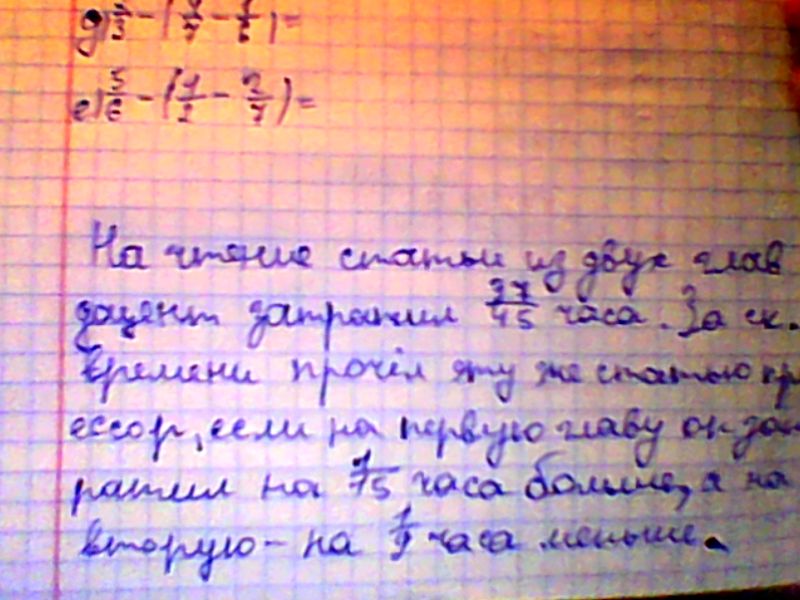 е) 5/6 - (1/2 - 2/7) =
На чтение статьи из двух глав
доцент затратил 37/45 часа. За ск.
времени прочёл эту же статью пр
ессор, если на первую главу он зат
ратил на 1/15 часа больше, а на
вторую - на 1/9 часа меньше.